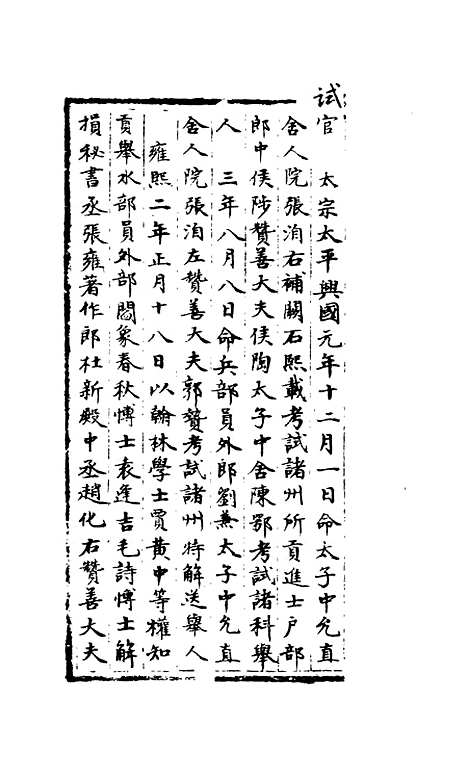 试官　太宗太平興國元年十二月一日命太子中允直
舍人院張洎右補闕石熙載考試諸州所貢進士户部
郎中侯陟贊善大夫侯陶太子中舍陳鄂考試諸科舉
人　三年八月八日命兵部員外郎劉兼太子中允直
舍人院張洎左贊善大夫郭贄考試諸州特解送舉人
雍熙二年正月十八日以翰林學士賈黃中等權知
貢舉水部員外部閻象春秋愽士袁逢吉毛詩愽士解
損祕書丞張雍著作郎杜新殿中丞趙化右贊善大夫